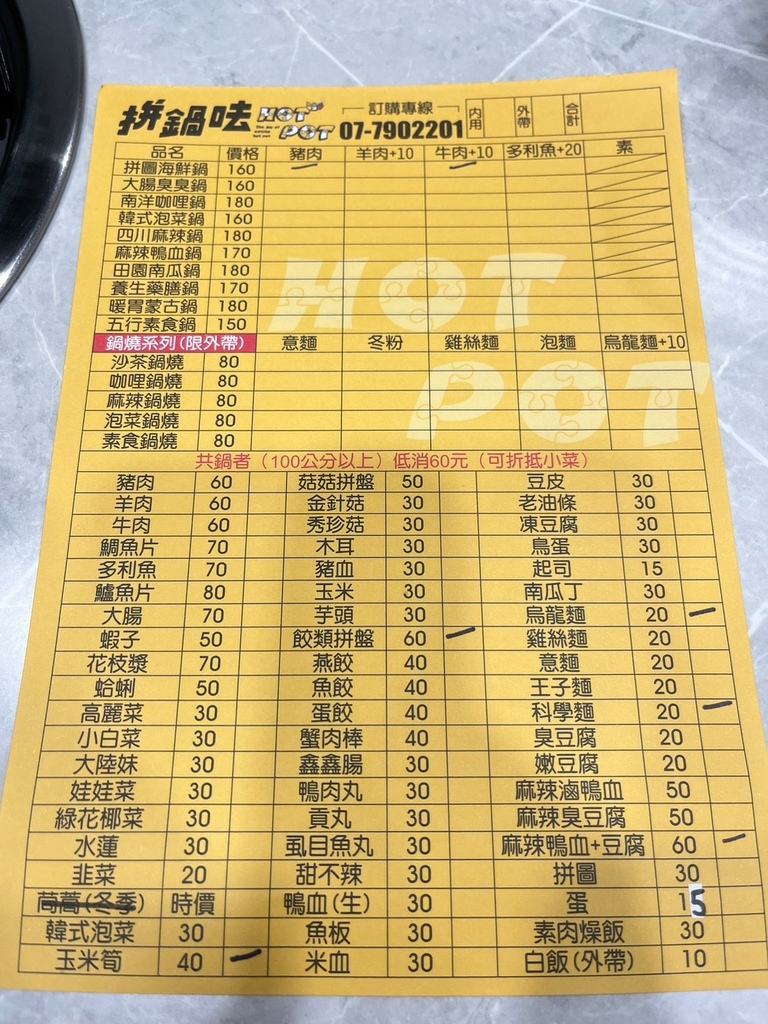 拚鍋呿 HOT POT 訂購專線 07-7902201 內用 外帶 合計
品名 價格 豬肉 羊肉+10 牛肉+10 多利魚+20 素
拼圖海鮮鍋 160
大腸臭臭鍋 160
南洋咖哩鍋 180
韓式泡菜鍋 160
四川麻辣鍋 180
麻辣鴨血鍋 170
田園南瓜鍋 180
養生藥膳鍋 170
暖胃蒙古鍋 180
五行素食鍋 150
HOT
鍋燒系列(限外帶) 意麵 冬粉 雞絲麵 泡麵 烏龍麵+10
沙茶鍋燒 80
咖哩鍋燒 80
麻辣鍋燒 80
泡菜鍋燒 80
素食鍋燒 80
POT
共鍋者（100公分以上）低消60元（可折抵小菜）
豬肉 60 菇菇拼盤 50 豆皮 30
羊肉 60 金針菇 30 老油條 30
牛肉 60 秀珍菇 30 凍豆腐 30
鯛魚片 70 木耳 30 鳥蛋 30
多利魚 70 豬血 30 起司 15
鱸魚片 80 玉米 30 南瓜丁 30
大腸 70 芋頭 30 烏龍麵 20
蝦子 50 餃類拼盤 60 雞絲麵 20
花枝漿 70 燕餃 40 意麵 20
蛤蜊 50 魚餃 40 王子麵 20
高麗菜 30 蛋餃 40 科學麵 20
小白菜 30 蟹肉棒 40 臭豆腐 20
大陸妹 30 鑫鑫腸 30 嫩豆腐 20
娃娃菜 30 鴨肉丸 30 麻辣滷鴨血 50
綠花椰菜 30 貢丸 30 麻辣臭豆腐 50
水蓮 30 虱目魚丸 30 麻辣鴨血+豆腐 60
韭菜 20 甜不辣 30 拼圖 30
茼蒿(冬季) 時價 鴨血(生) 30 蛋 15
韓式泡菜 30 魚板 30 素肉燥飯 30
玉米筍 40 米血 30 白飯(外帶) 10